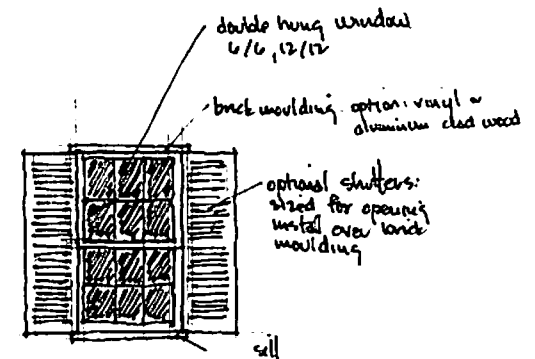 double hung window
6/6, 12/12
brick moulding option: vinyl or
aluminum clad wood
optional shutters:
sized for opening
install over brick
moulding
sill